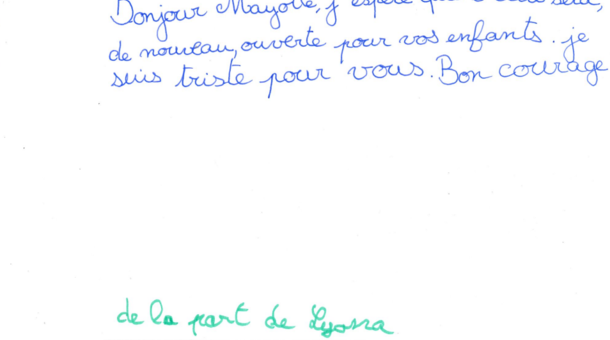 Bonjour Mayotte, j'espère que
de nouveau, ouverte pour vos enfants. je
suis triste pour vous. Bon courage
de la part de Lyana